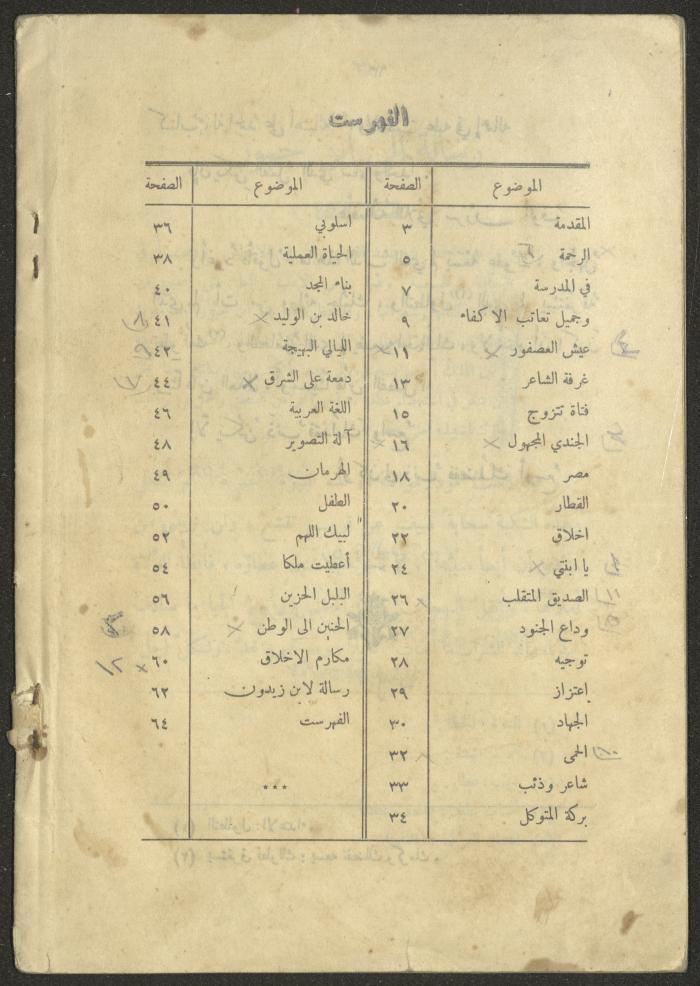 الفهرست
الموضوع الصفحة
المقدمة ٣
الرحمة ٥
في المدرسة ٧
وجميل تعاتب الاكفاء ٩
عيش العصفور ١١
غرفة الشاعر ١٣
فتاة تتزوج ١٥
الجندي المجهول ١٦
مصر ١٨
القطار ٢٠
اخلاق ٢٢
يا ابنتي ٢٤
الصديق المتقلب ٢٦
وداع الجنود ٢٧
توجيه ٢٨
إعتزاز ٢٩
الجهاد ٣٠
الحمى ٣٢
شاعر وذئب ٣٣
بركة المتوكل ٣٤
الموضوع الصفحة
اسلوبي ٣٦
الحياة العملية ٣٨
بناء المجد ٤٠
خالد بن الوليد ٤١
الليالي البهيجة ٤٢
دمعة على الشرق ٤٤
اللغة العربية ٤٦
آلة التصوير ٤٨
الهرمان ٤٩
الطفل ٥٠
لبيك اللهم ٥٢
أعطيت ملكا ٥٤
البلبل الحزين ٥٦
الحنين الى الوطن ٥٨
مكارم الاخلاق ٦٠
رسالة لابن زيدون ٦٢
الفهرست ٦٤
***